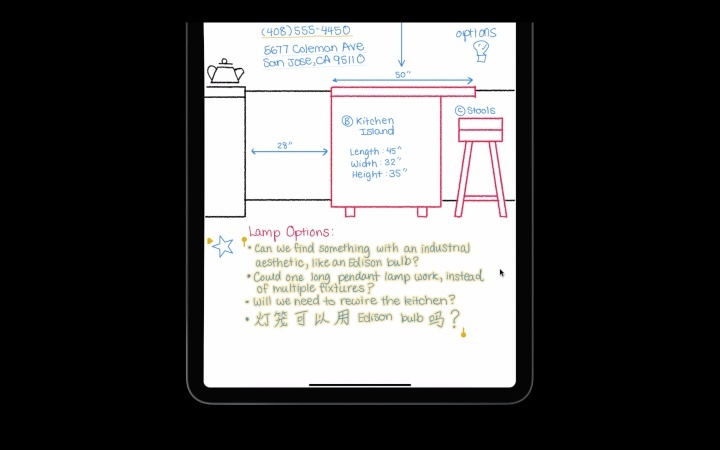 (408)555-4450
5677 Coleman Ave
San Jose, CA 95110
options
50"
C Stools
B Kitchen
Island
28"
Length: 45"
Width: 32"
Height: 35"
Lamp Options:
• Can we find something with an industrial
aesthetic, like an Edison bulb?
• Could one long pendant lamp work, instead
of multiple fixtures?
• Will we need to rewire the kitchen?
• 灯笼可以用 Edison bulb 吗?